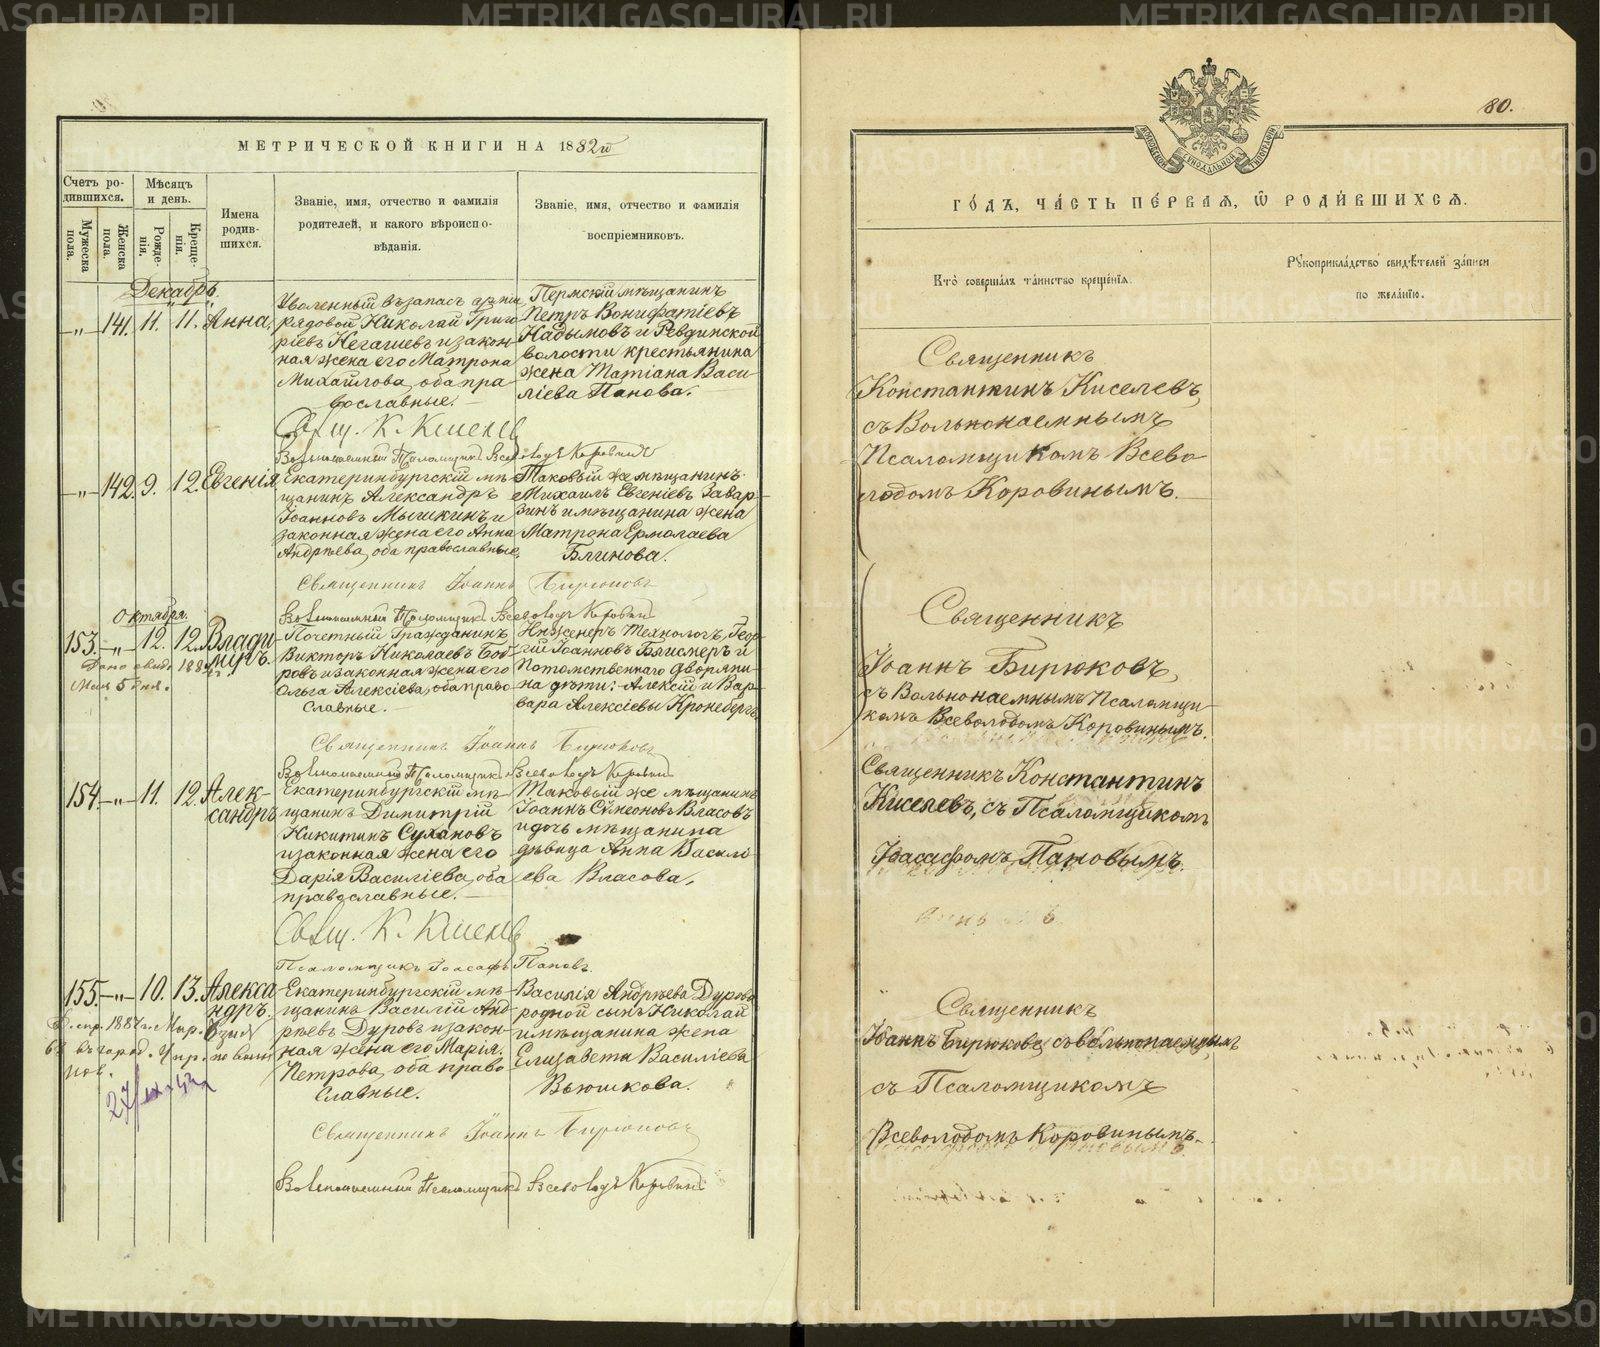 80.
МЕТРИЧЕСКОЙ КНИГИ НА 1882й
Счетъ ро-
дившихся.
Мѣсяцъ
и день.
Мужеска
пола.
Женска
пола.
Рожде-
нія.
Креще-
нія.
Имена
родив-
шихся.
Званіе, имя, отчество и фамилія
родителей, и какого вѣроиспо-
вѣданія.
Званіе, имя, отчество и фамилія
воспріемниковъ.
Декабрь.
-„- 141. 11. 11. Анна,
Уволенный въ запасъ арміи
рядовой Николай Григо
ріевъ Негашевъ и закон-
ная жена его Матрона
Михайлова, оба пра-
вославные.
Пермскій мѣщанинъ
Петръ Вонифатіевъ
Надымовъ и Ревдинской
волости крестьянина
жена Татіана Васи-
ліева Панова.
Свящ. К. Киселев
Вольнонаемный Псаломщикъ Всеволодъ Коровинъ
-„- 142. 9. 12. Евгенія,
Екатеринбургскій мѣ-
щанинъ Александръ
Іоанновъ Мышкинъ и
законная жена его Анна
Андрѣева, оба православные.
Таковый же мѣщанинъ
Михаилъ Евгеніевъ Завар-
зинъ и мѣщанина жена
Матрона Ермолаева
Блинова.
Священникъ Іоаннъ Бирюковъ
Вольнонаемный Псаломщикъ Всеволодъ Коровинъ
Октября.
153. -„- 12. 12. Влади-
міръ.
Почетный Гражданинъ
Викторъ Николаевъ Боб-
ровъ и законная жена его
Ольга Алексіева, оба право
славные.
Инженеръ Технологъ, Геор-
гій Іоанновъ Блюмеръ и
потомственнаго дворяни-
на дѣти: Алексій и Вар-
вара Алексіевы Кронебергъ.
Священникъ Іоаннъ Бирюковъ
Вольнонаемный Псаломщикъ Всеволодъ Коровинъ
154. -„- 11. 12. Алек-
сандръ
Екатеринбургскій мѣ-
щанинъ Димитрій
Никитинъ Сухановъ
и законная жена его
Дарія Василіева, оба
православные.
Таковый же мѣщанинъ
Іоаннъ Сѵмеоновъ Власовъ
и дочь мѣщанина
дѣвица Анна Василі-
ева Власова.
Свящ. К. Киселев
Псаломщикъ Іоасафъ Пановъ.
155. -„- 10. 13. Алекса
ндръ.
Екатеринбургскій мѣ-
щанинъ Василій Анд-
рѣевъ Дуровъ и закон-
ная жена его Марія
Петрова, оба право
славные.
Василія Андрѣева Дурова
родной сынъ Николай
и мѣщанина жена
Елизавета Василіева
Вьюшкова.
Священникъ Іоаннъ Бирюковъ
Вольнонаемный Псаломщикъ Всеволодъ Коровинъ
ГО́ДЪ, ЧА́СТЬ ПЕ́РВАЯ, Ѿ РОДИ́ВШИХСЯ.
Кто̀ совершалъ таинство крещенія.
Рукоприкладство свидѣтелей записи
по желанію.
Священникъ
Константинъ Киселевъ,
съ Вольнонаемнымъ
Псаломщикомъ Всево
лодомъ Коровинымъ.
Священникъ
Іоаннъ Бирюковъ,
съ Вольнонаемнымъ Псаломщи-
комъ Всеволодомъ Коровинымъ.
Священникъ Константинъ
Киселевъ, съ Псаломщикомъ
Іоасафомъ Пановымъ.
Священникъ
Іоаннъ Бирюковъ, съ вольнонаемнымъ
съ Псаломщикомъ
Всеволодомъ Коровинымъ.
METRIKI.GASO-URAL.RU